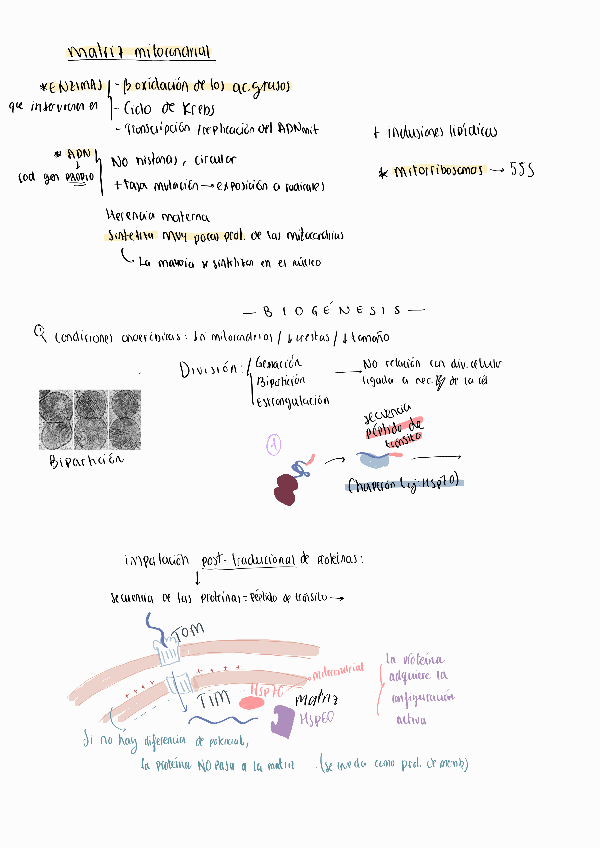 matriz mitocondrial
* ENZIMAS - β oxidación de los ac. grasos
que intervienen en - Ciclo de Krebs
- Transcripción / replicación del ADNmit
+ Inclusiones lipídicas
* ADN No histonas, circular
* Mitorribosomas → 55S
cod gen PROPIO + tasa mutación → exposición a radicales
Herencia materna
Sintetiza muy pocas prot. de las mitocondrias
La mayoría se sintetizan en el núcleo
— BIOGÉNESIS —
Condiciones anaeróbicas: ↓n mitocondrias / ↓crestas / ↓tamaño
División: Gemación
Bipartición
Estrangulación
No relación con div. celular
ligada a nec. de la cél
Bipartición
1
secuencia
péptido de
tránsito
Chaperón (ej: Hsp70)
importación post-traduccional de proteínas:
secuencia de las proteínas = péptido de tránsito →
TOM
TIM
Hsp70 mitocondrial
matriz
HSP60
La proteína
adquiere la
configuración
activa
Si no hay diferencia de potencial,
la proteína NO pasa a la matriz (se queda como prot. de memb)